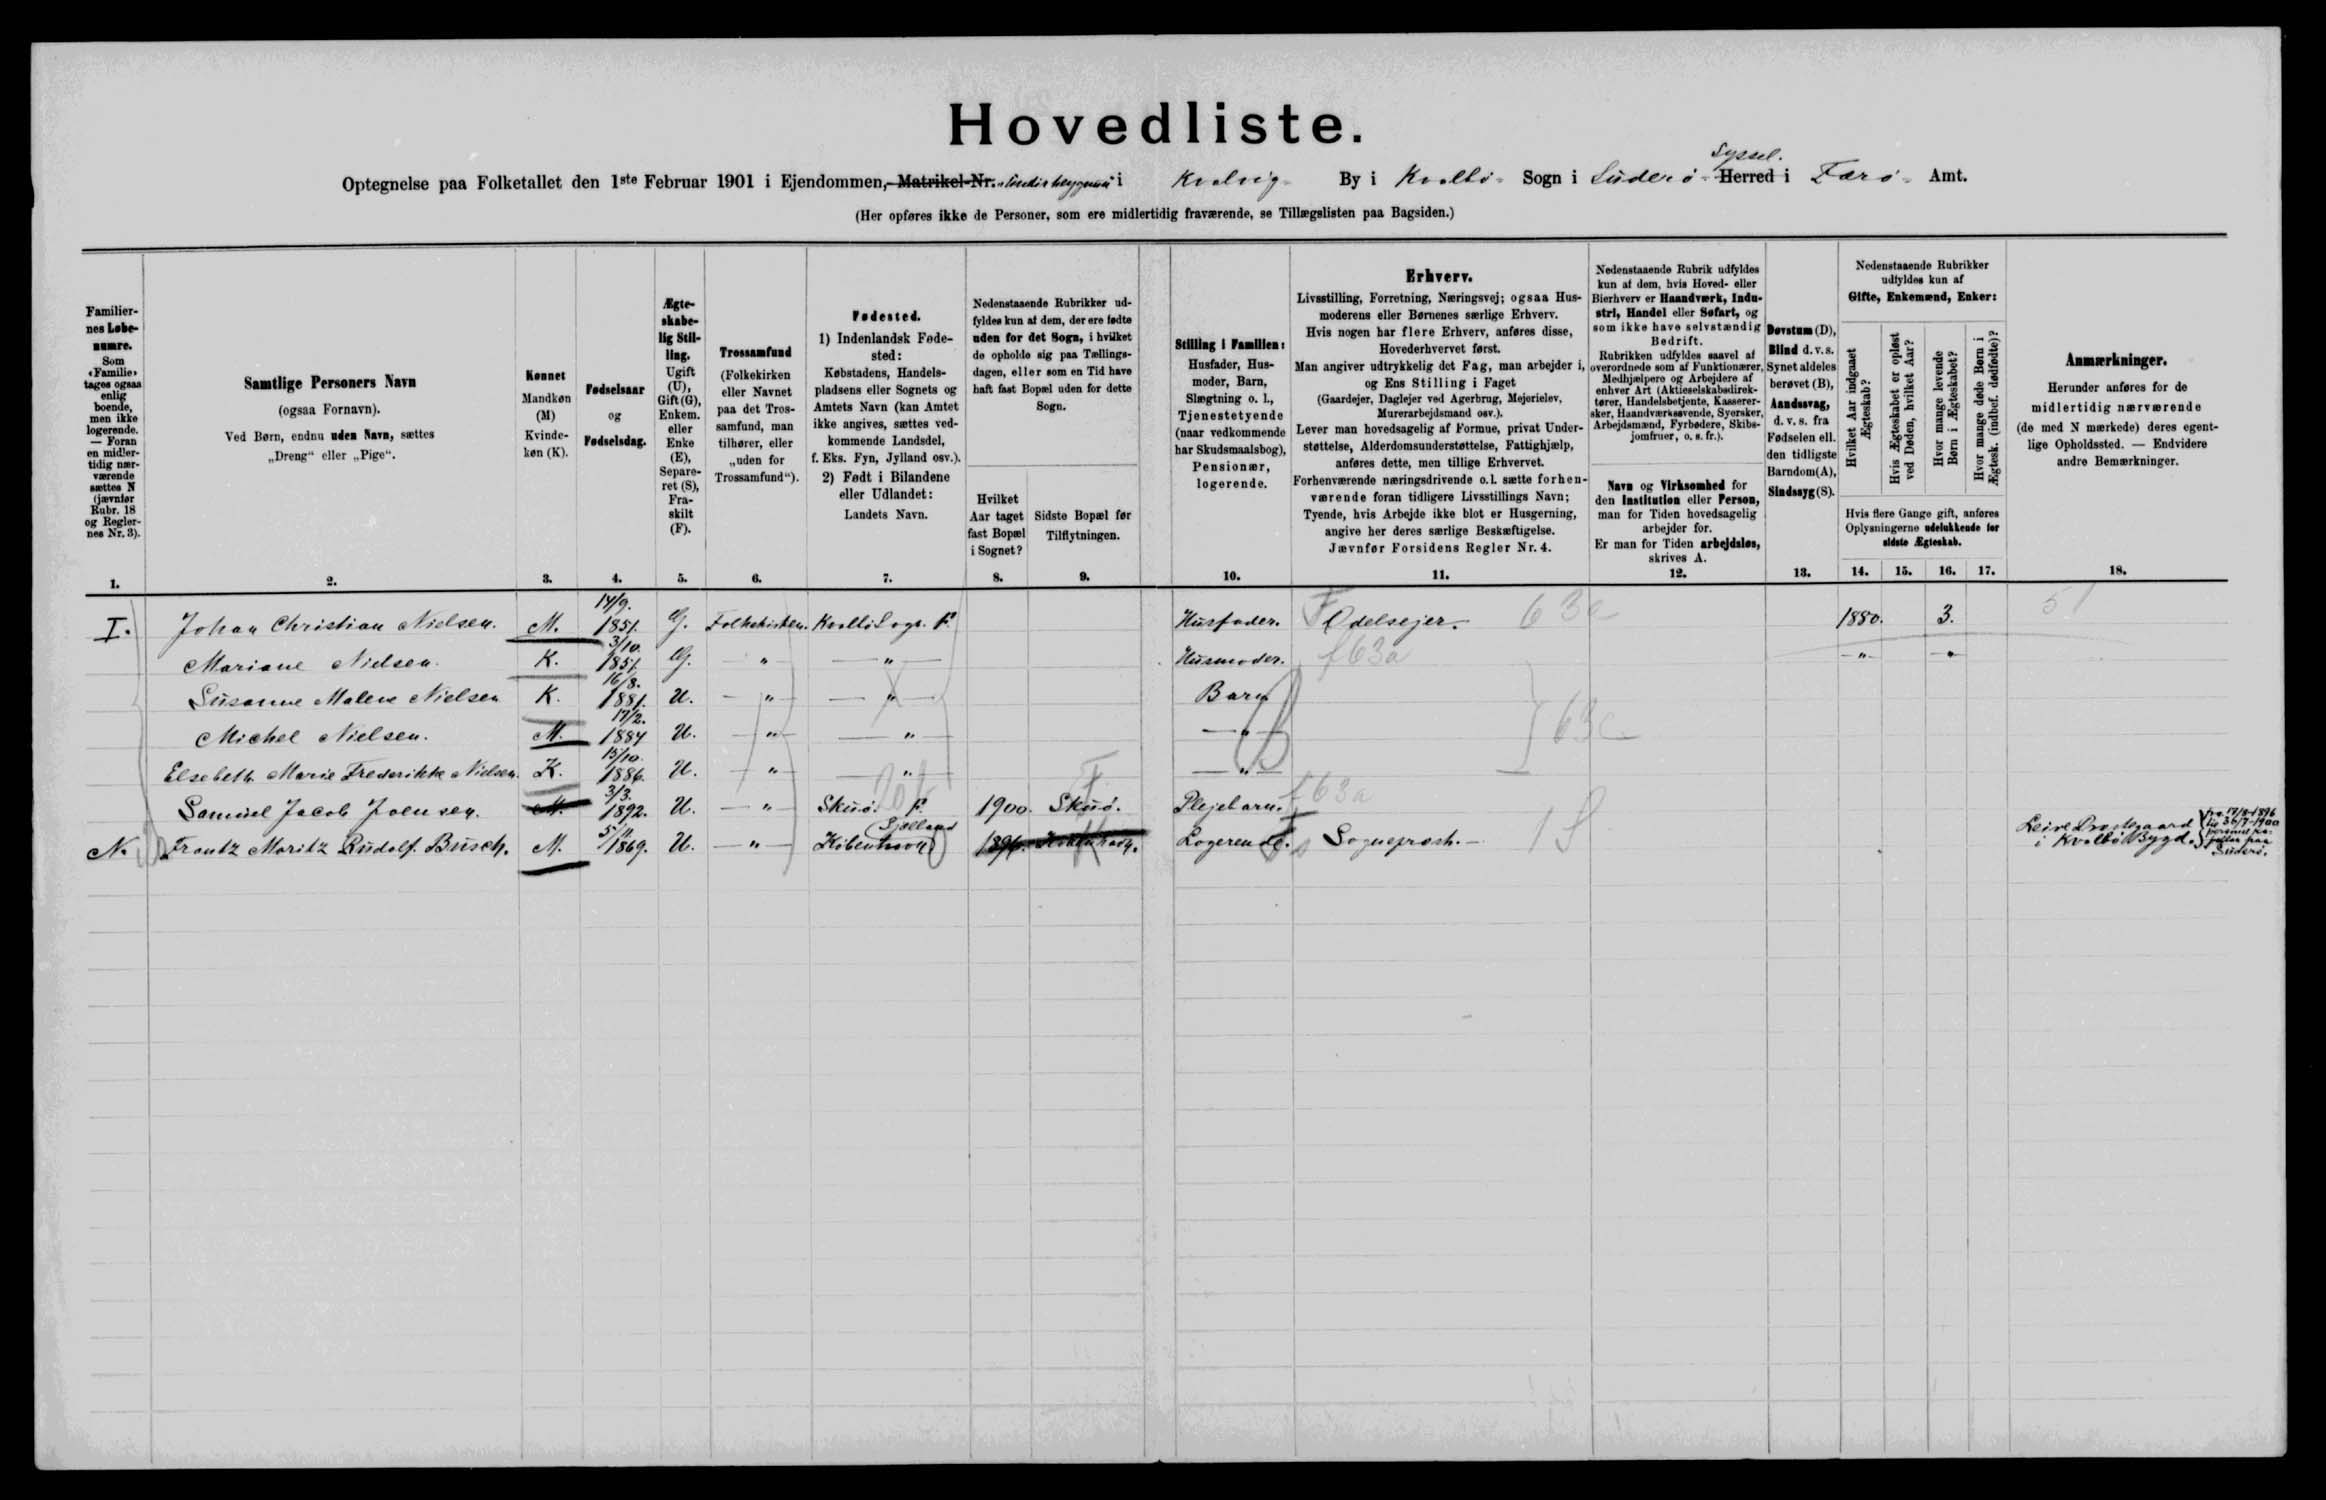 Hovedliste.
Syssel.
Optegnelse paa Folketallet den 1ste Februar 1901 i Ejendommen, Matrikel-Nr. i Kvalvig By i Kvalbø Sogn i Suderø Herred i Færø Amt.
(Her opføres ikke de Personer, som ere midlertidig fraværende, se Tillægslisten paa Bagsiden.)
Familier-
nes Løbe-
numre.
Som
«Familie»
tages ogsaa
enlig
boende,
men ikke
logerende.
— Foran
en midler-
tidig nær-
værende
sættes N
(jævnfør
Rubr. 18
og Regler-
nes Nr. 3).
1.
Samtlige Personers Navn
(ogsaa Fornavn).
Ved Børn, endnu uden Navn, sættes
„Dreng“ eller „Pige“.
2.
Kønnet
Mandkøn
(M)
Kvinde-
køn (K).
3.
Fødselsaar
og
Fødselsdag.
4.
Ægte-
skabe-
lig Stil-
ling.
Ugift
(U),
Gift (G),
Enkem.
eller
Enke
(E),
Separe-
ret (S),
Fra-
skilt
(F).
5.
Trossamfund
(Folkekirken
eller Navnet
paa det Tros-
samfund, man
tilhører, eller
„uden for
Trossamfund“).
6.
Fødested.
1) Indenlandsk Føde-
sted:
Købstadens, Handels-
pladsens eller Sognets og
Amtets Navn (kan Amtet
ikke angives, sættes ved-
kommende Landsdel,
f. Eks. Fyn, Jylland osv.).
2) Født i Bilandene
eller Udlandet:
Landets Navn.
7.
Nedenstaaende Rubrikker ud-
fyldes kun af dem, der ere fødte
uden for det Sogn, i hvilket
de opholde sig paa Tællings-
dagen, eller som en Tid have
haft fast Bopæl uden for dette
Sogn.
Hvilket
Aar taget
fast Bopæl
i Sognet?
8.
Sidste Bopæl før
Tilflytningen.
9.
Stilling i Familien:
Husfader, Hus-
moder, Barn,
Slægtning o. l.,
Tjenestetyende
(naar vedkommende
har Skudsmaalsbog),
Pensionær,
logerende.
10.
Erhverv.
Livsstilling, Forretning, Næringsvej; ogsaa Hus-
moderens eller Børnenes særlige Erhverv.
Hvis nogen har flere Erhverv, anføres disse,
Hovederhvervet først.
Man angiver udtrykkelig det Fag, man arbejder i,
og Ens Stilling i Faget
(Gaardejer, Daglejer ved Agerbrug, Mejerielev,
Murerarbejdsmand osv.).
Lever man hovedsagelig af Formue, privat Under-
støttelse, Alderdomsunderstøttelse, Fattighjælp,
anføres dette, men tillige Erhvervet.
Forhenværende næringsdrivende o. l. sætte forhen-
værende foran tidligere Livsstillings Navn;
Tyende, hvis Arbejde ikke blot er Husgerning,
angive her deres særlige Beskæftigelse.
Jævnfør Forsidens Regler Nr. 4.
11.
Nedenstaaende Rubrik udfyldes
kun af dem, hvis Hoved- eller
Bierhverv er Haandværk, Indu-
stri, Handel eller Søfart, og
som ikke have selvstændig
Bedrift.
Rubrikken udfyldes saavel af
overordnede som af Funktionærer,
Medhjælpere og Arbejdere af
enhver Art (Aktieselskabsdirek-
tører, Handelsbetjente, Kasserer-
sker, Haandværkssvende, Syersker,
Arbejdsmænd, Fyrbødere, Skibs-
jomfruer, o. s. fr.).
Navn og Virksomhed for
den Institution eller Person,
man for Tiden hovedsagelig
arbejder for.
Er man for Tiden arbejdsløs,
skrives A.
12.
Døvstum (D),
Blind d. v. s.
Synet aldeles
berøvet (B),
Aandssvag,
d. v. s. fra
Fødselen ell.
den tidligste
Barndom (A),
Sindssyg (S).
13.
Nedenstaaende Rubrikker
udfyldes kun af
Gifte, Enkemænd, Enker:
Hvilket Aar indgaaet
Ægteskab?
Hvis Ægteskabet er opløst
ved Døden, hvilket Aar?
Hvor mange levende
Børn i Ægteskabet?
Hvor mange døde Børn i
Ægtesk. (indbef. dødfødte)?
Hvis flere Gange gift, anføres
Oplysningerne udelukkende for
sidste Ægteskab.
14. 15. 16. 17.
Anmærkninger.
Herunder anføres for de
midlertidig nærværende
(de med N mærkede) deres egent-
lige Opholdssted. — Endvidere
andre Bemærkninger.
18.
I. Johan Christian Nielsen. M. 14/9. 1851. G. Folkekirken. Kvalbø Sogn. F. Husfader. F Odelsejer. 63a 1880. 3. 51
Mariane Nielsen. K. 3/10. 1851. G. — " — — " — Husmoder. f63a — " — — " —
Susanne Malene Nielsen K. 16/8. 1881. U. — " — — " — Barn B 63c
Michel Nielsen. M. 17/2. 1884 U. — " — — " — — " —
Elsebeth Marie Frederikke Nielsen. K. 15/10. 1886. U. — " — — " — — " —
Samuel Jacob Joensen. M. 3/3. 1892. U. — " — Skuø. F. 1900. Skuø. F Plejebarn. f63a
N. Frantz Moritz Rudolf Busch. M. 5/11. 1869. U. — " — Kibenhavn Sjælland 1896. Logerende. Sognepræst. — 1
Leive Præstegaard
i Kvalbø Bygd.
fra 17/8-1896
til 30/7-1900
Suderø.